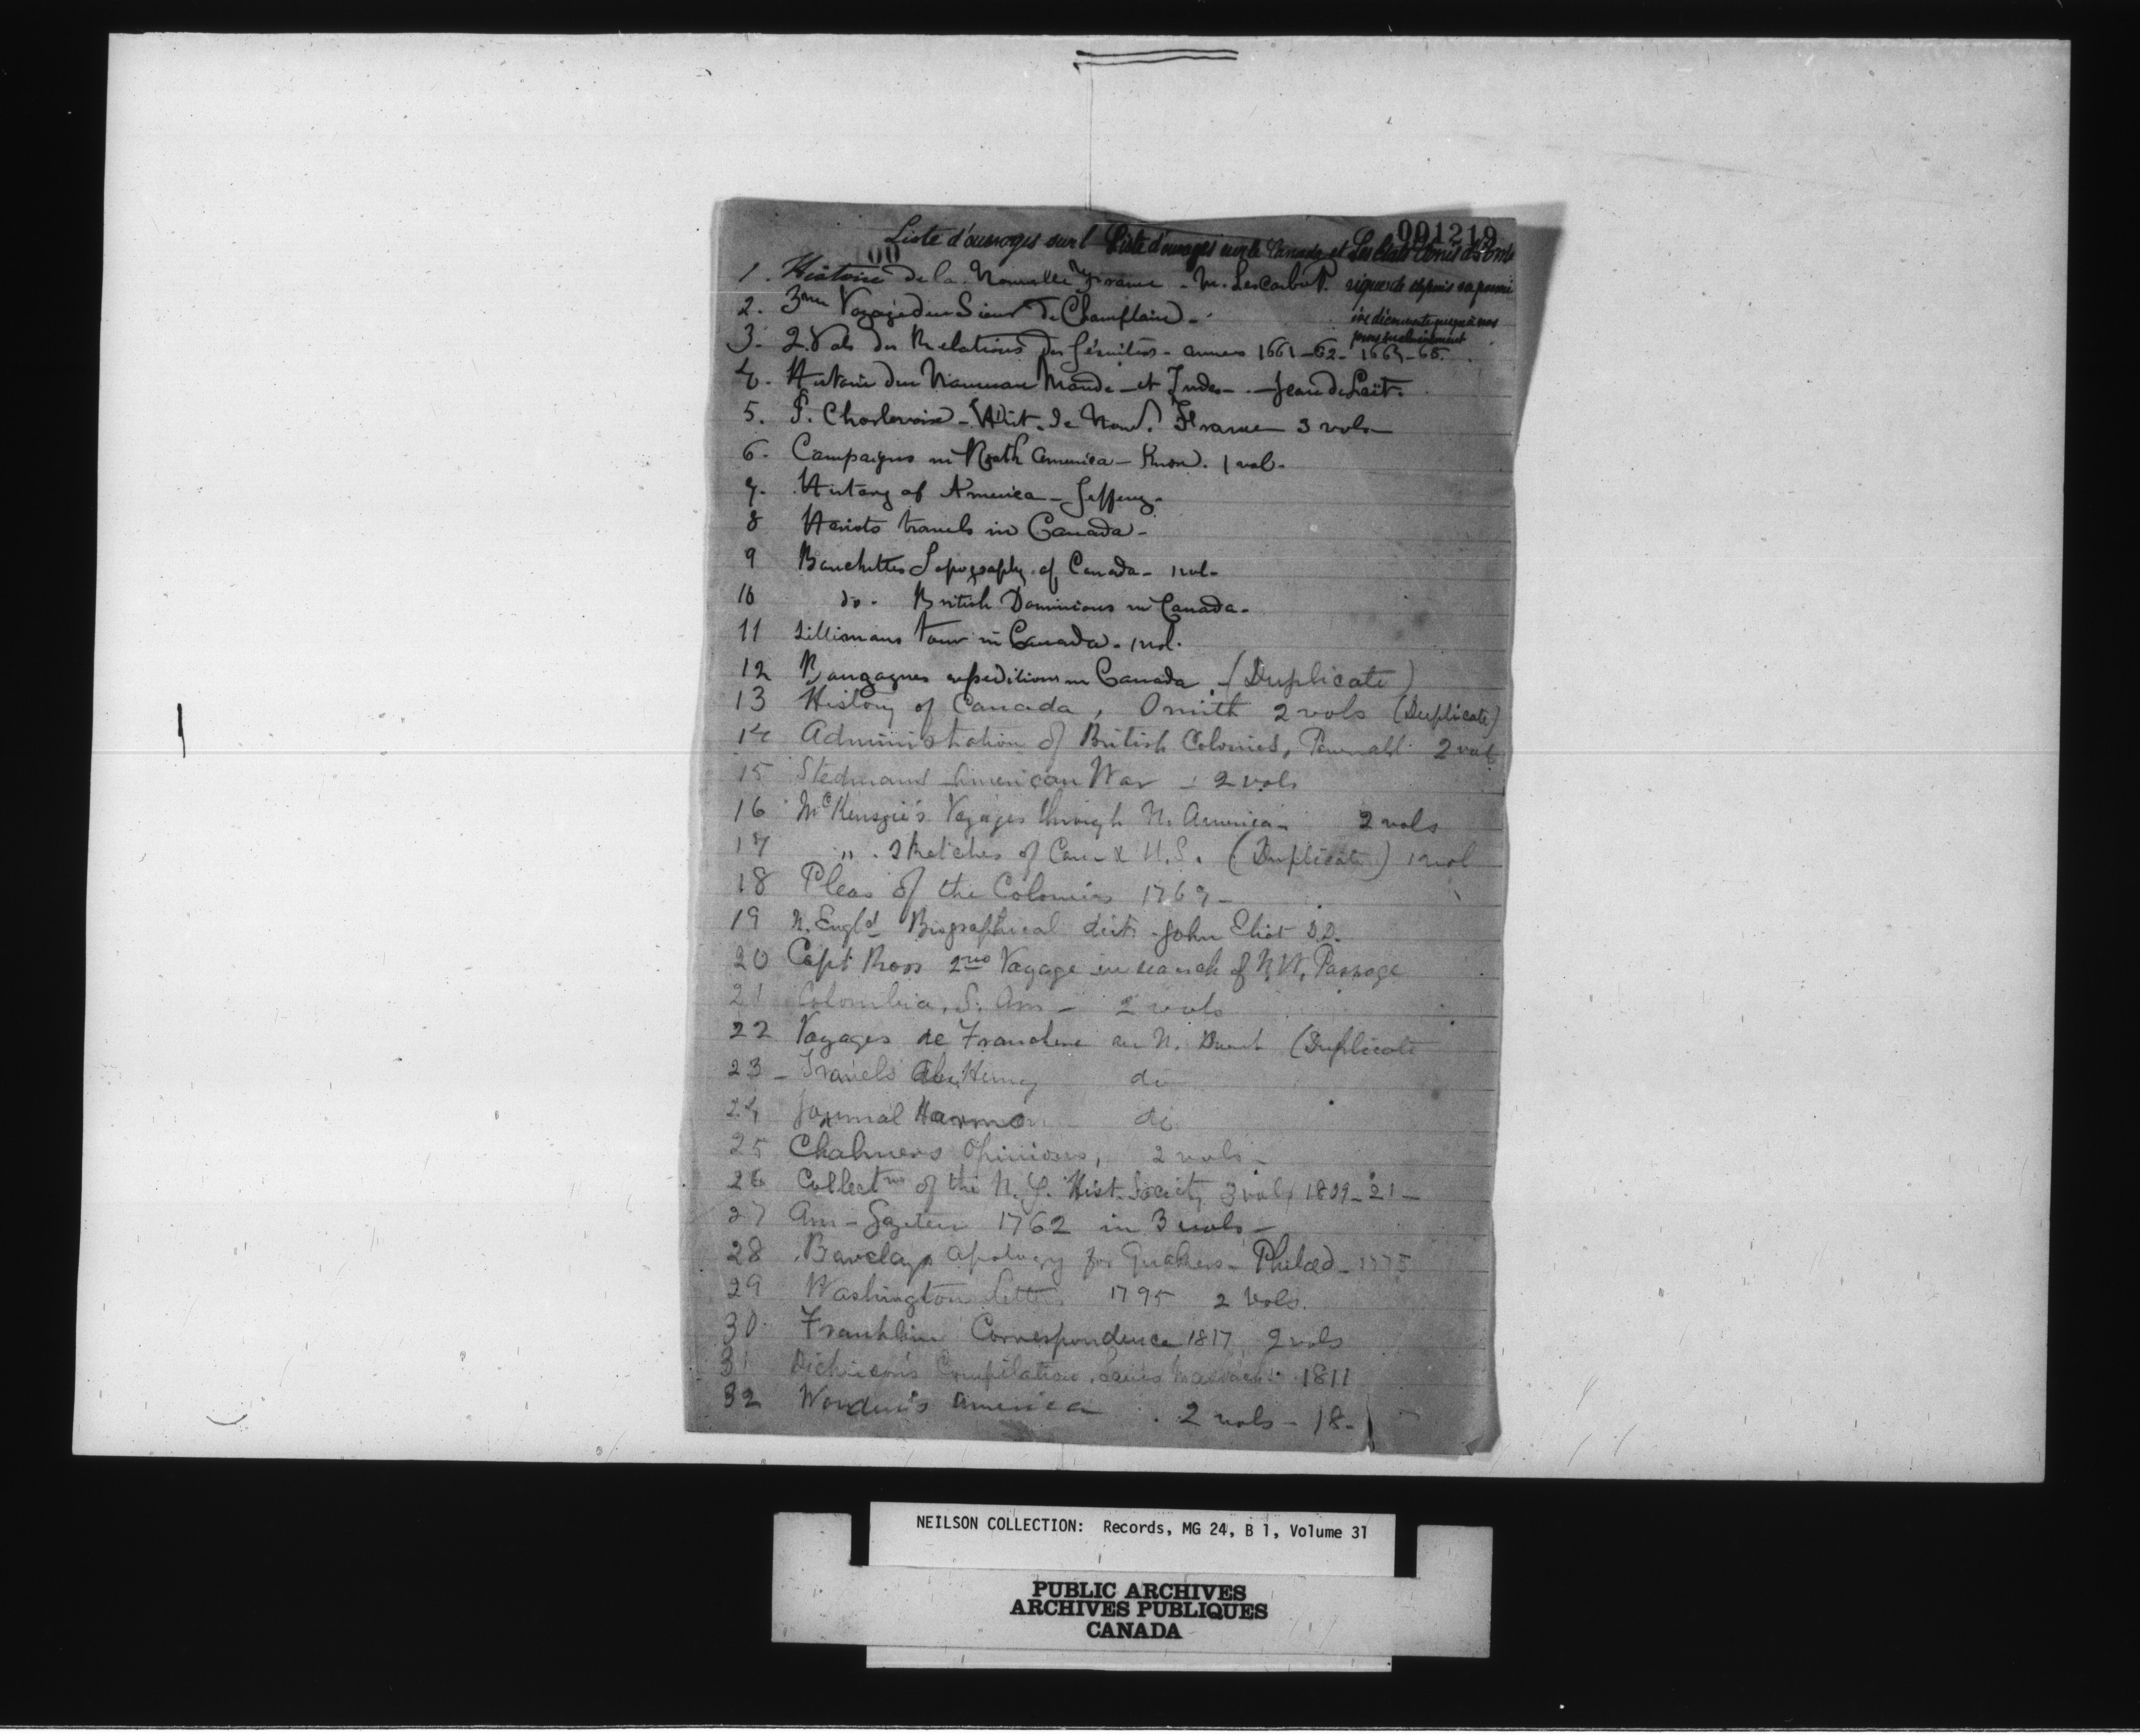 001219
00
Liste d'ouvrages sur l Liste d'ouvrages sur le Canada et Les Etats Unis d'Amé
rique depuis sa premi
ère découverte jusqu'à nos
jours inclusivement
1. Histoire de la Nouvelle France - M. Lescarbot.
2. 3me Voyage du Sieur De Champlain -
3. 2 Vols des Relations des Jésuites - années 1661-62- 1664-65.
4. Histoire du Nouveau Monde - et Indes - - Jean de Laët.
5. P. Charlevoix - Hist. de Nouv. France 3 vols -
6. Campaigns in North America - Knox. 1 vol -
7. History of America - Jefferys.
8 Heriots travels in Canada -
9 Bouchettes Topography of Canada - 1 vol -
10 do - British Dominions in Canada -
11 Sillimans tour in Canada - 1 vol.
12 Burgoynes expedition in Canada. (Duplicate)
13 History of Canada, Smith 2 vols (Duplicate)
14 Administration of British Colonies, Pownall 2 vols
15 Stedmans American War - 2 vols
16 McKenzie's Voyages through N. America - 2 vols
17 " . Sketches of Can - & U.S. (Duplicate) 1 vol
18 Pleas of the Colonies 1769 -
19 N. Engld Biographical dict. John Eliot D.D.
20 Capt Ross 2nd Voyage in search of N.W. Passage
21 Colombia, S. Am - 2 vols
22 Voyages de Franchere au N. Ouest (Duplicate
23 - Travels Alex. Henry do
24 Journal Harmon do
25 Chalmers Opinions, 2 vols -
26 Collectns of the N.Y. Hist. Society 3 vols 1809-21 -
27 Am - Gazeteer 1762 in 3 vols -
28 Barclays apology for Quakers - Philad - 1775
29 Washington letters 1795 2 Vols.
30 Franklin Correspondence 1817, 2 vols
31 Dickinson's Compilation, 1811
32 Warden's America . 2 vols - 18 -
NEILSON COLLECTION: Records, MG 24, B 1, Volume 31
PUBLIC ARCHIVES
ARCHIVES PUBLIQUES
CANADA